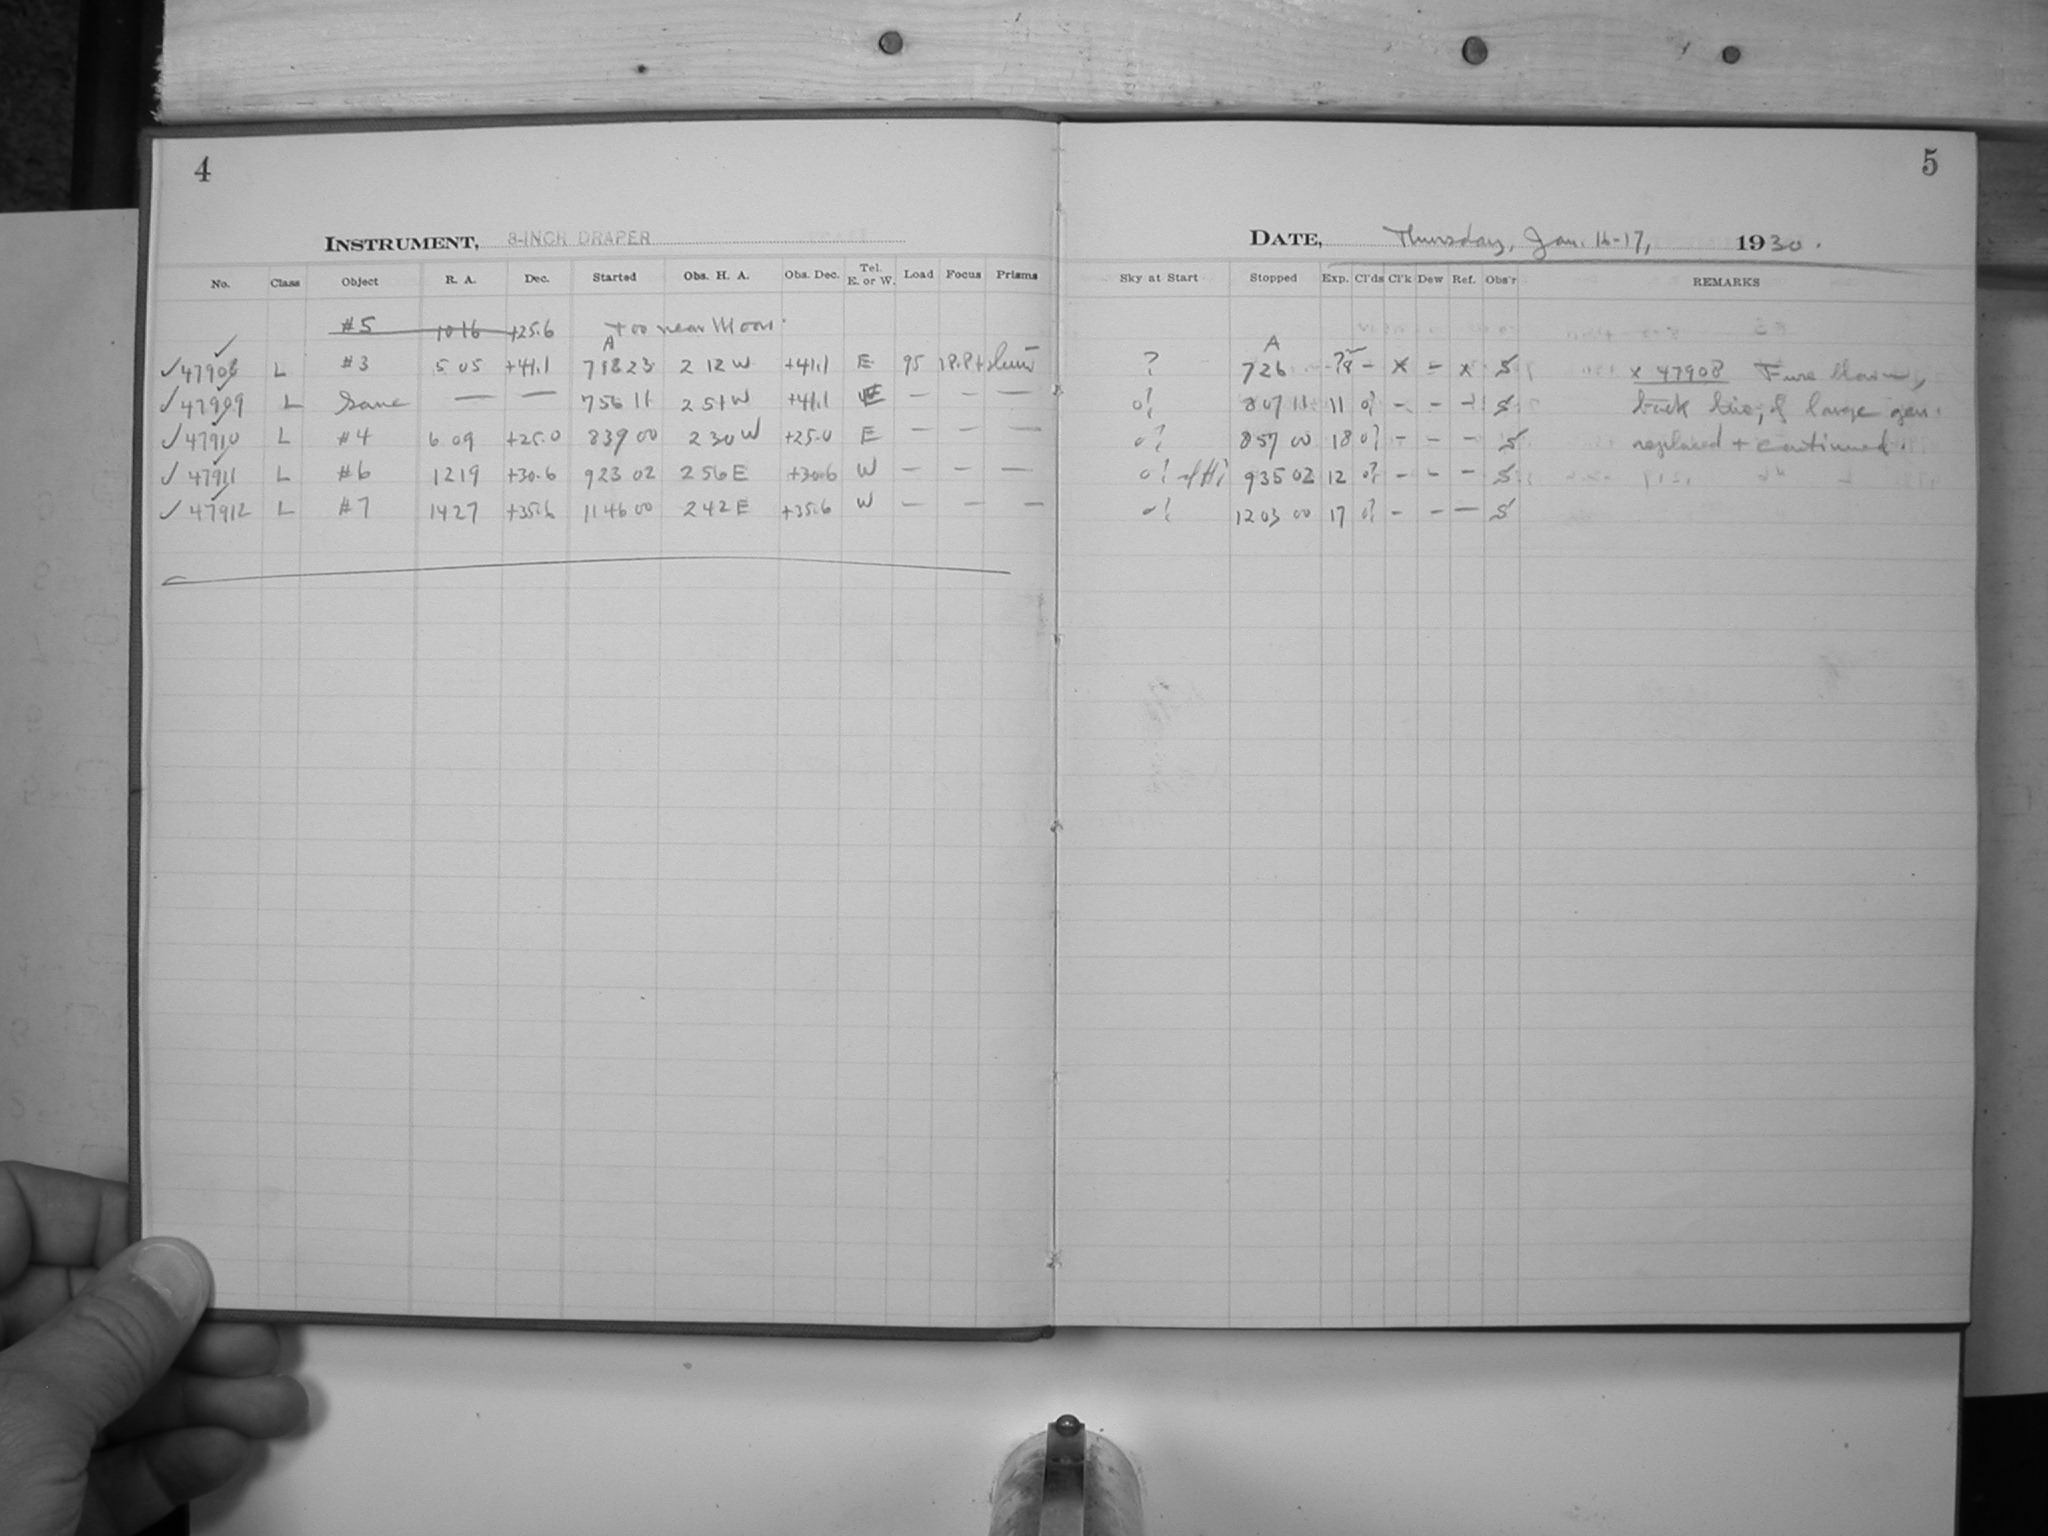 4
INSTRUMENT, 8-INCH DRAPER
No. Class Object R. A. Dec. Started Obs. H. A. Obs. Dec. Tel. E. or W. Load Focus Prisms
#5 10 16 +25.6 too near Moon.
A
47908 L #3 5 05 +41.1 7 18 23 2 12 W +41.1 E 95
47909 L Same — — 7 56 11 2 51 W +41.1 E — — —
47910 L #4 6 09 +25.0 8 39 00 2 30 W +25.0 E — — —
47911 L #6 12 19 +30.6 9 23 02 2 56 E +30.6 W — — —
47912 L #7 14 27 +35.6 11 46 00 2 42 E +35.6 W — — —
5
DATE, Thursday, Jan. 16-17, 1930.
Sky at Start Stopped Exp. Cl'ds Cl'k Dew Ref. Obs'r REMARKS
A
? 7 26 – x – x S x 47908 Fuse blown,
8 07 11 11 – – – S of large gen.
8 57 00 18 – – – S replaced + continued.
9 35 02 12 – – – S
12 03 00 17 – – — S